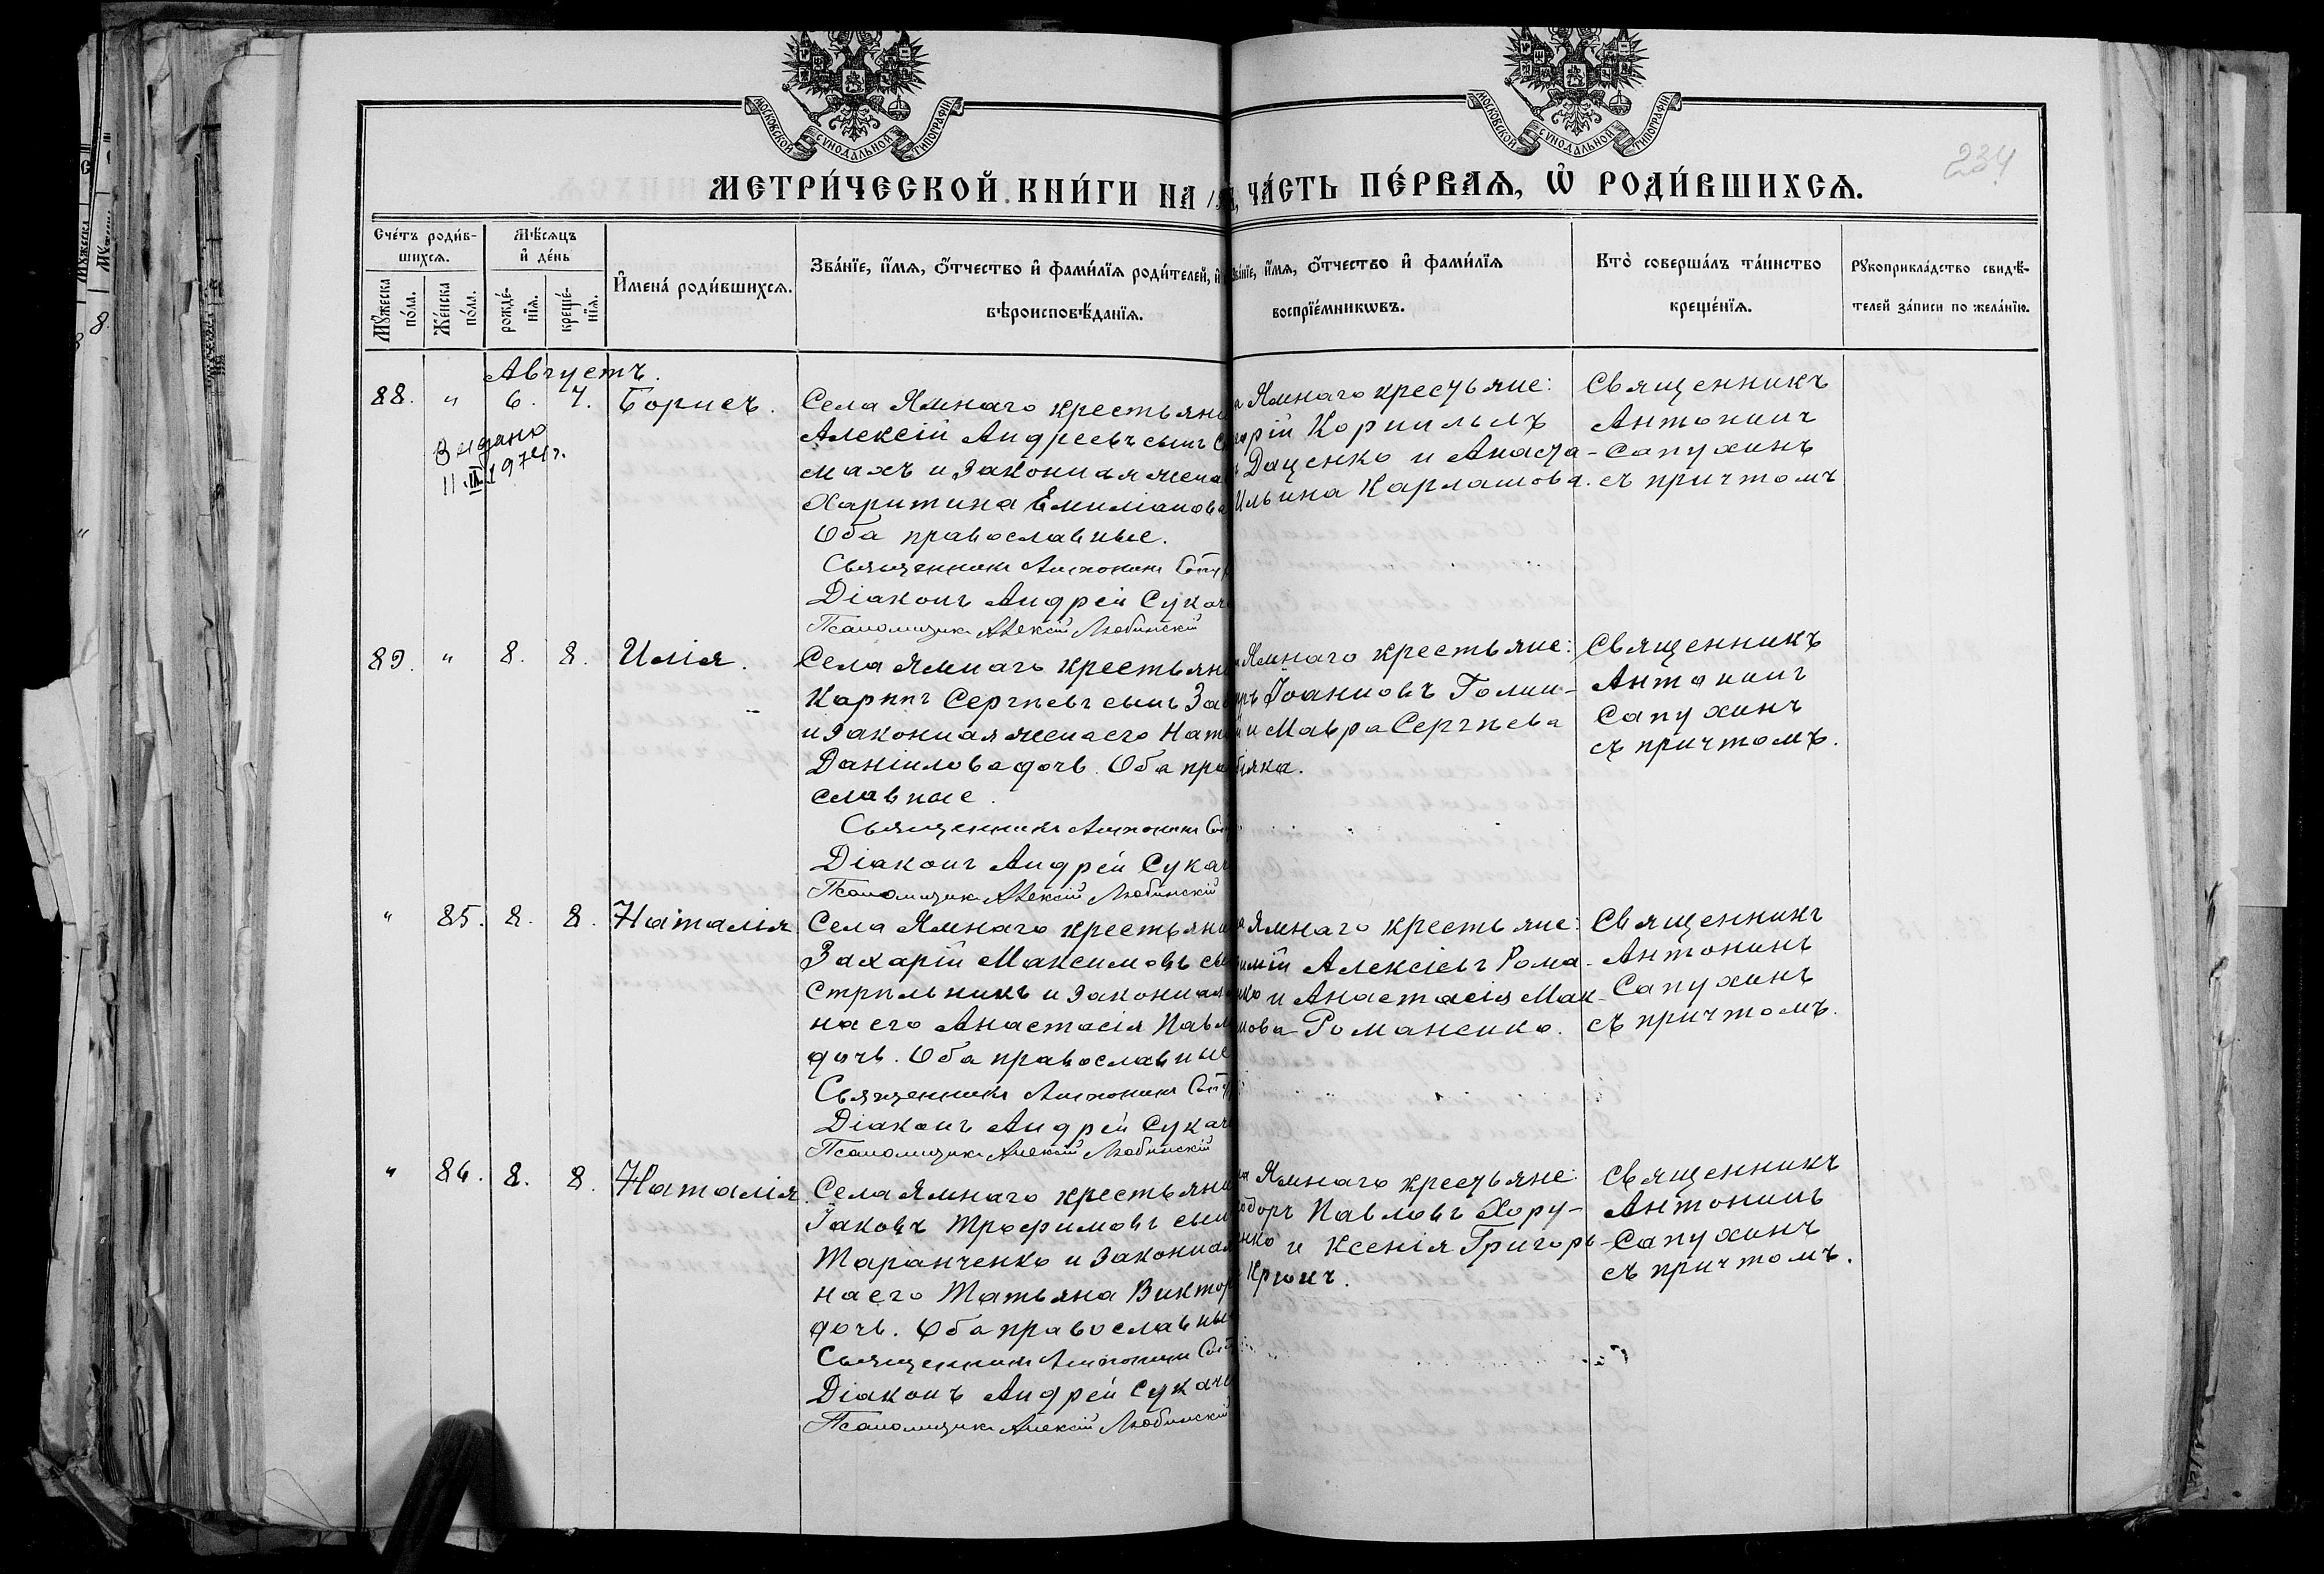 МОСКОВСКОЙ СѴНОДАЛЬНОЙ ТИПОГРАФІИ
МОСКОВСКОЙ СѴНОДАЛЬНОЙ ТИПОГРАФІИ
234
МЕТРИ́ЧЕСКОЙ КНИ́ГИ НА
ЧА́СТЬ ПЕ́РВАѦ, Ѡ҆ РОДИ́ВШИХСѦ.
Сче́тъ роди́в-
шихсѧ.
Мꙋ́жеска по́ла.
Же́нска по́ла.
Мѣ́сѧцъ
и҆ де́нь
рожде́-
нїѧ.
креще́-
нїѧ.
И҆мена́ роди́вшихсѧ.
Зва́нїе, и҆́мѧ, ѻ҆́тчество и҆ фами́лїѧ роди́телей, и҆
вѣроисповѣ́данїѧ.
Зва́нїе, и҆́мѧ, ѻ҆́тчество и҆ фами́лїѧ
воспрїе́мникѡвъ.
Кто̀ соверша́лъ та́инство
креще́нїѧ.
Рꙋкоприкла́дство свидѣ́-
телей за́писи по жела́нїю.
Августъ.
88. " 6. 7. Борисъ.
Выдано
11.IX.1974г.
Села Ямнаго крестьяни
Алексій Андреевъ сынъ С
махъ и законная жена
Харитина Емиліанова
Оба православные.
Священникъ Антонинъ Сапу
Діаконъ Андрей Сукач
Псаломщикъ Алексій Любинскій
Ямнаго крестьяне:
орій Корнильевъ
Даценко и Анаста-
Ильина Карлашова.
Священникъ
Антонинъ
Сапухинъ
съ причтомъ
89. " 8. 8. Илія.
Села Ямнаго крестьяни
Карпъ Сергѣевъ сынъ За
и законная жена его Нат
Даніилова дочь. Оба пра
славные.
Священникъ Антонинъ Сап
Діаконъ Андрей Сукач
Псаломщикъ Алексій Любинскій
Ямнаго крестьяне:
Іоанновъ Голин-
и Мавра Сергѣева
бяка.
Священникъ
Антонинъ
Сапухинъ
съ причтомъ.
" 85. 8. 8. Наталія
Села Ямнаго крестьяни
Захарій Максимовъ сы
Стрѣльникъ и законная
на его Анастасія Павл
дочь. Оба православные
Священникъ Антонинъ Сапу
Діаконъ Андрей Сукач
Псаломщикъ Алексій Любинскій
Ямнаго крестьяне:
Алексіевъ Рома-
нко и Анастасія Мак-
мова Романенко.
Священникъ
Антонинъ
Сапухинъ
съ причтомъ.
" 86. 8. 8. Наталія.
Села Ямнаго крестьяни
Іаковъ Трофимовъ сын
Таранченко и законная
на его Татьяна Виктор
дочь. Оба православны
Священникъ Антонинъ Сап
Діаконъ Андрей Сукаче
Псаломщикъ Алексій Любинскій
Ямнаго крестьяне:
одоръ Павловъ Хору-
нко и Ксенія Григорь-
Крюкъ.
Священникъ
Антонинъ
Сапухинъ
съ причтомъ.